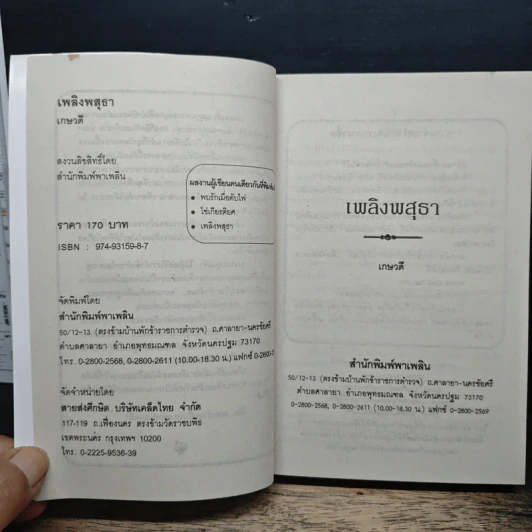 เพลิงพสุธา
เกษวดี
สงวนลิขสิทธิ์โดย
สำนักพิมพ์พาเพลิน
ผลงานผู้เขียนคนเดียวกันที่พิมพ์
• พบรักเมื่อดับไฟ
• โซ่เกียรติยศ
• เพลิงพสุธา
ราคา 170 บาท
ISBN : 974-93159-8-7
จัดพิมพ์โดย
สำนักพิมพ์พาเพลิน
50/12-13 (ตรงข้ามบ้านพักข้าราชการตำรวจ) ถ.ศาลายา-นครชัยศรี
ตำบลศาลายา อำเภอพุทธมณฑล จังหวัดนครปฐม 73170
โทร. 0-2800-2568, 0-2800-2611 (10.00-18.30 น.) แฟกซ์ 0-2800-
จัดจำหน่ายโดย
สายส่งศึกษิต บริษัทเคล็ดไทย จำกัด
117-119 ถ.เฟื่องนคร ตรงข้ามวัดราชบพิธ
เขตพระนคร กรุงเทพฯ 10200
โทร. 0-2225-9536-39
เพลิงพสุธา
เกษวดี
สำนักพิมพ์พาเพลิน
50/12-13 (ตรงข้ามบ้านพักข้าราชการตำรวจ) ถ.ศาลายา-นครชัยศรี
ตำบลศาลายา อำเภอพุทธมณฑล จังหวัดนครปฐม 73170
0-2800-2568, 0-2800-2611 (10.00-18.30 น.) แฟกซ์ 0-2800-2569